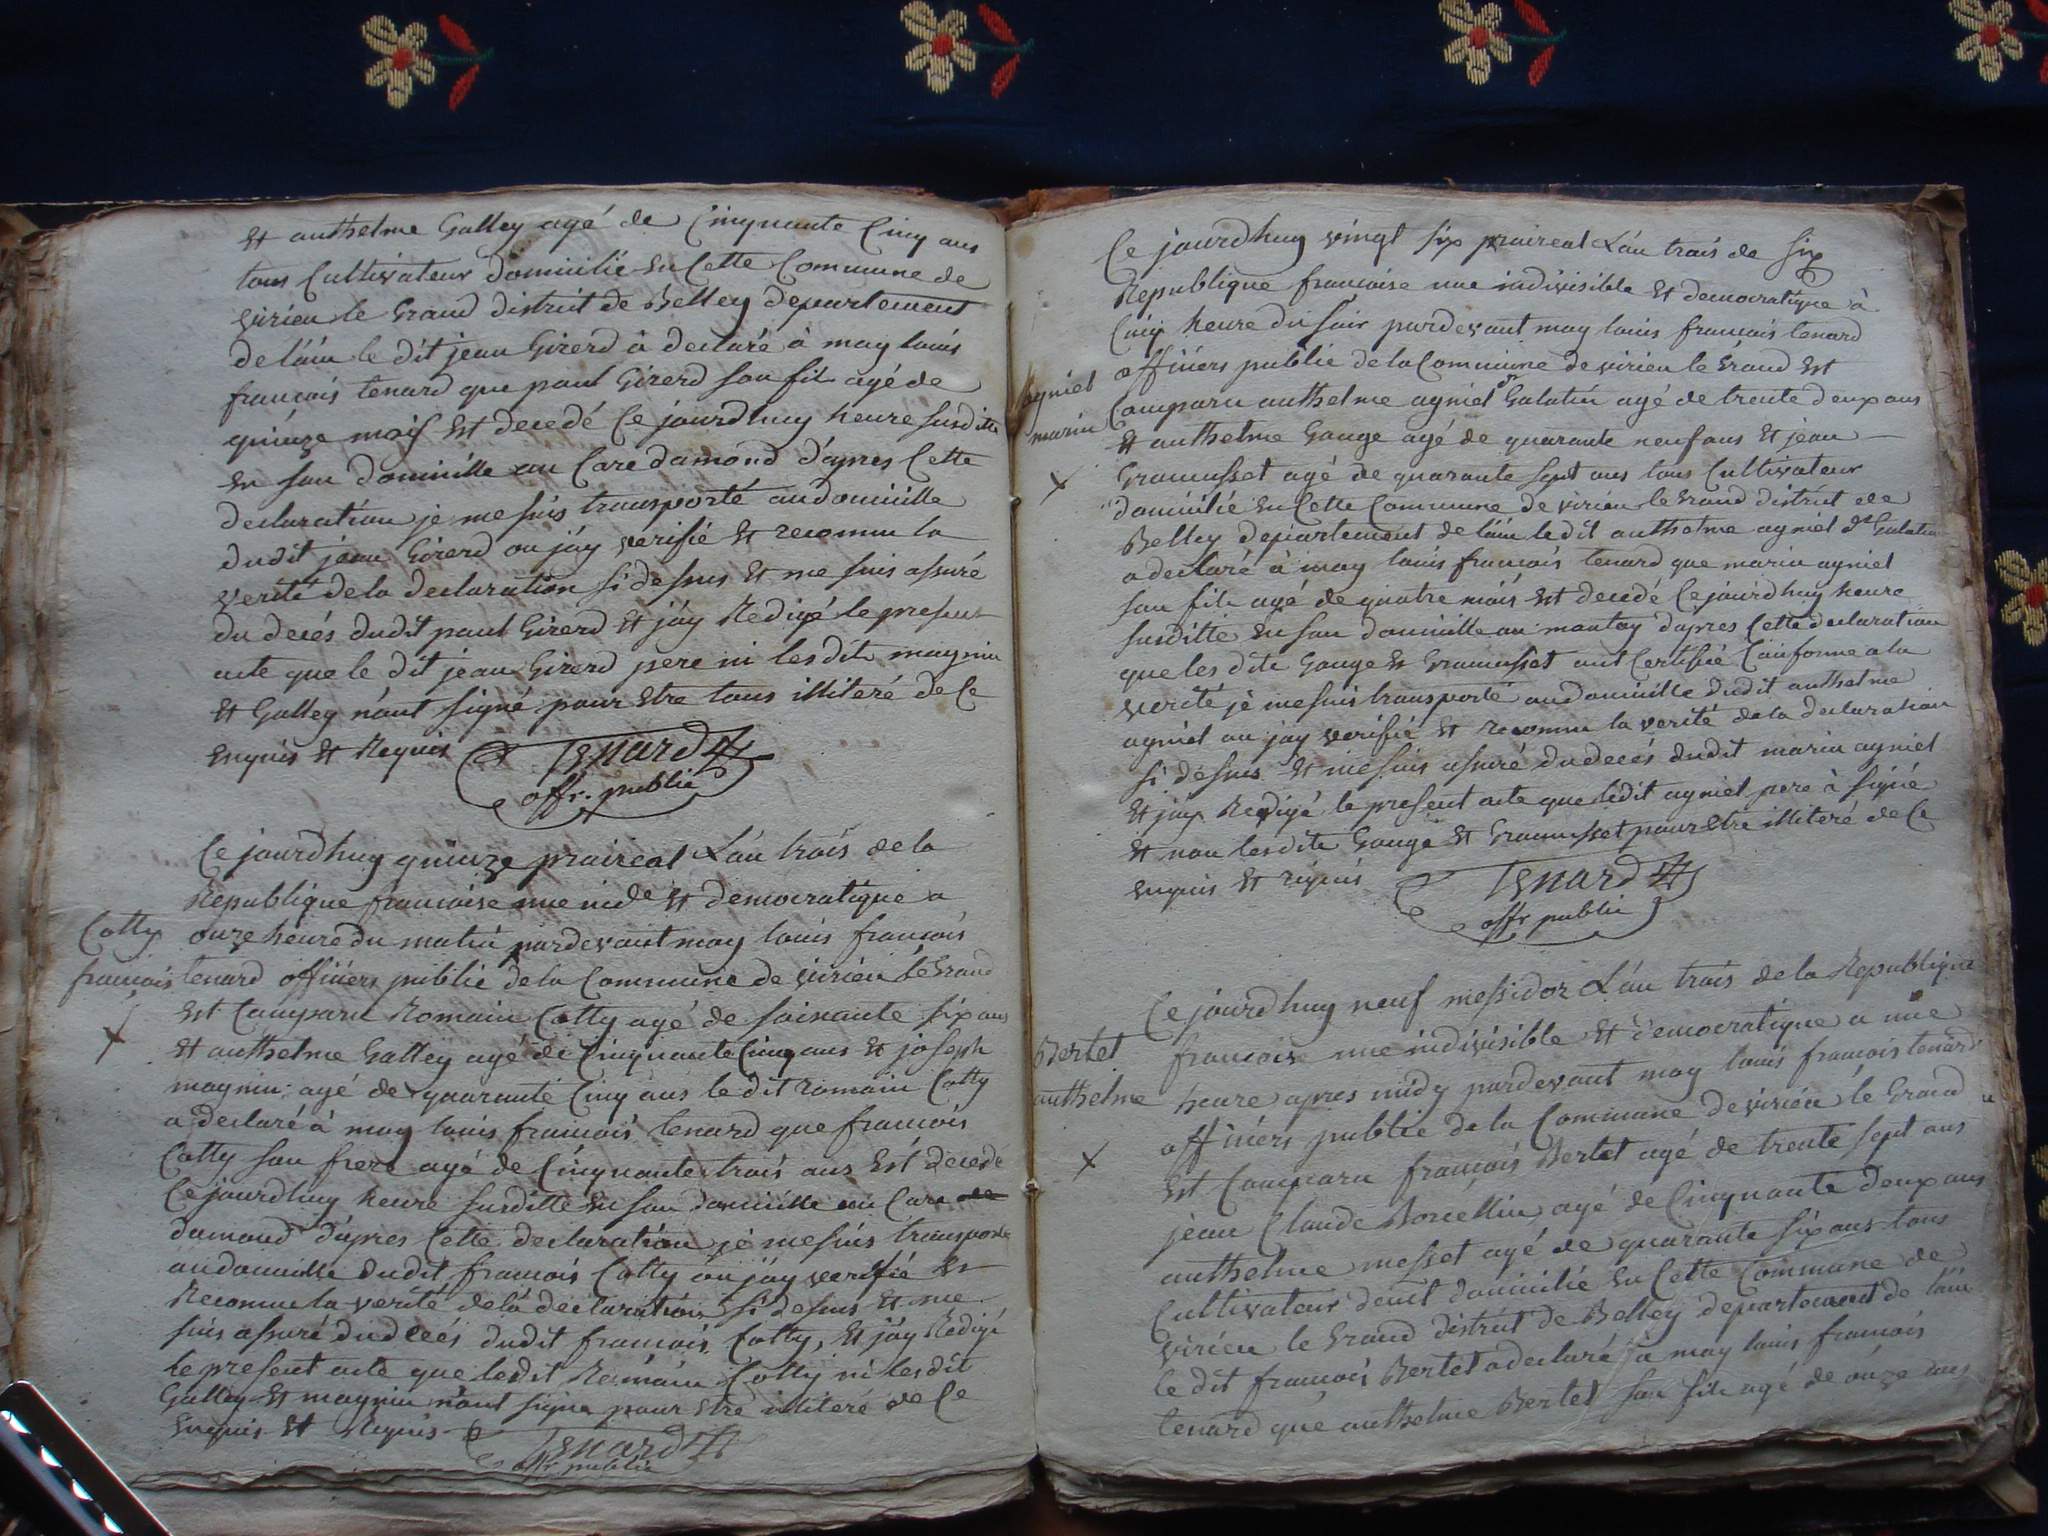 Et anthelme Galley agé de Cinquante Cinq ans
tous Cultivateur domicilié En Cette Commune de
virieu le Grand district de Belley departement
de láin le dit jean Girerd à declaré à moy louis
francois tenard que paul Girerd son fils agé de
quinze mois Est decedé Ce jourdhuy heure susditte
En son domicille au Care damond dápres Cette
declaration je me suis transporté au domicille
dudit jean Girerd ou jáy verifié Et reconnu la
verité de la declaration si dessus Et me suis assuré
du decés dudit paul Girerd Et jáy Redigé le present
acte que le dit jean Girerd pere ni lesdits magnin
Et Galley nónt signé pour Estre tous illiteré de Ce
enquis Et Requis Tenard
offr. public
Ce jourdhuy quinze praireal Lán trois de la
Republique francoise une inde Et democratique a
onze heure du matin pardevant moy louis francois
Cotty
francois
tenard officiers public de la Commune de virieu le Grand
Est Comparu Romain Cotty agé de soixante six ans
Et anthelme Galley agé de Cinquante Cinq ans Et joseph
magnin agé de quarante Cinq ans le dit romain Cotty
a declaré à moy louis francois tenard que francois
Cotty son frere agé de Cinquante trois ans Est decedé
Ce jourdhuy heure susditte En son domicille au Care de
damond dápres Cette declaration je me suis transporté
au domicille dudit francois Cotty ou jáy verifié Et
Reconnu la verité de la declaration si dessus Et me
suis assuré du decés dudit francois Cotty, Et jáy Redigé
le present acte que ledit Romain Cotty ni lesdit
Galley Et magnin nónt signé pour Estre illiteré de Ce
Enquis Et Requis Tenard
offr public
Ce jourdhuy vingt six praireal Lán trois de six
Republique francoise une indivisible Et democratique à
Cinq heure du soir pardevant moy louis francois tenard
officiers public de la Commune de virieu le Grand Est
agniel
marin
Comparu anthelme agniel dt Galatin agé de trente deux ans
Et anthelme Gouge agé de quarante neuf ans Et jean
Gramusset agé de quarante sept ans tous Cultivateur
domicilié En Cette Commune de virieu le Grand district de
Belley departement de láin ledit anthelme agniel dt Galatin
a declaré à moy louis francois tenard que marin agniel
son fils agé de quatre mois Est decedé Ce jourdhuy heure
susditte En son domicille au montoy dápres Cette declaration
que les dits Gouge Et Gramusset ont Certifié Conforme a la
verité je me suis transporté au domicille dudit anthelme
agniel ou jay verifié Et reconnu la verité de la declaration
si dessus Et me suis assuré du decés dudit marin agniel
Et jay Redigé le present acte que ledit agniel pere à signé
Et non lesdits Gouge Et Gramusset pour Estre illiteré de Ce
enquis Et requis Tenard
offr public
Ce jourdhuy neuf messidor Lán trois de la Republique
Bertet
anthelme
francoise une indivisible Et democratique a une
heure apres midy pardevant moy louis francois tenard
officiers public de la Commune de virieu le Grand
Est Comparu francois Bertet agé de trente sept ans
jean Claude Borcellin agé de Cinquante deux ans
anthelme messet agé de quarante six ans tous
Cultivateur domicilié En Cette Commune de
virieu le Grand district de Belley departement de láin
le dit francois Bertet a declaré à moy louis francois
tenard que anthelme Bertet son fils agé de onze ans